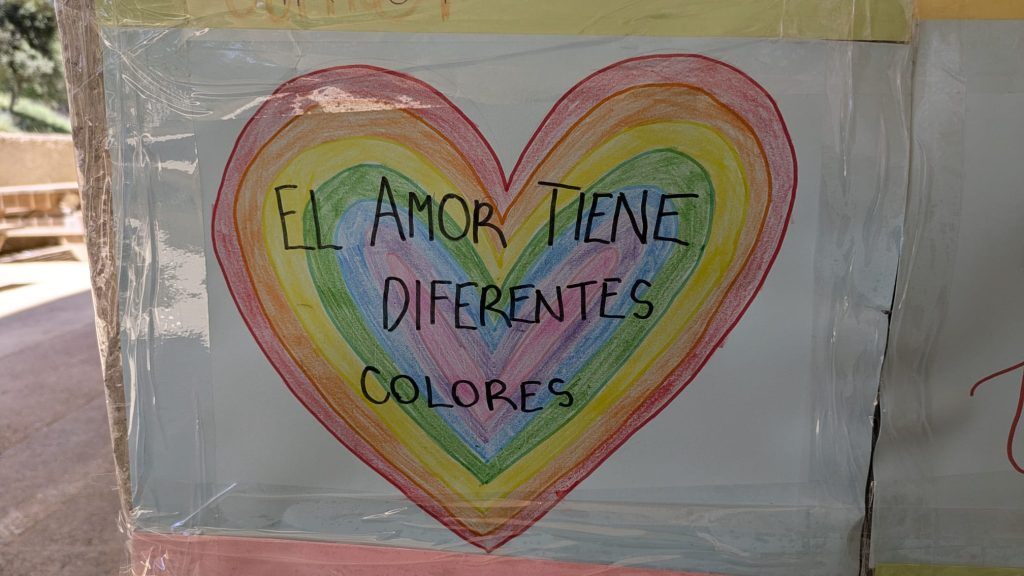 EL AMOR TIENE
DIFERENTES
COLORES